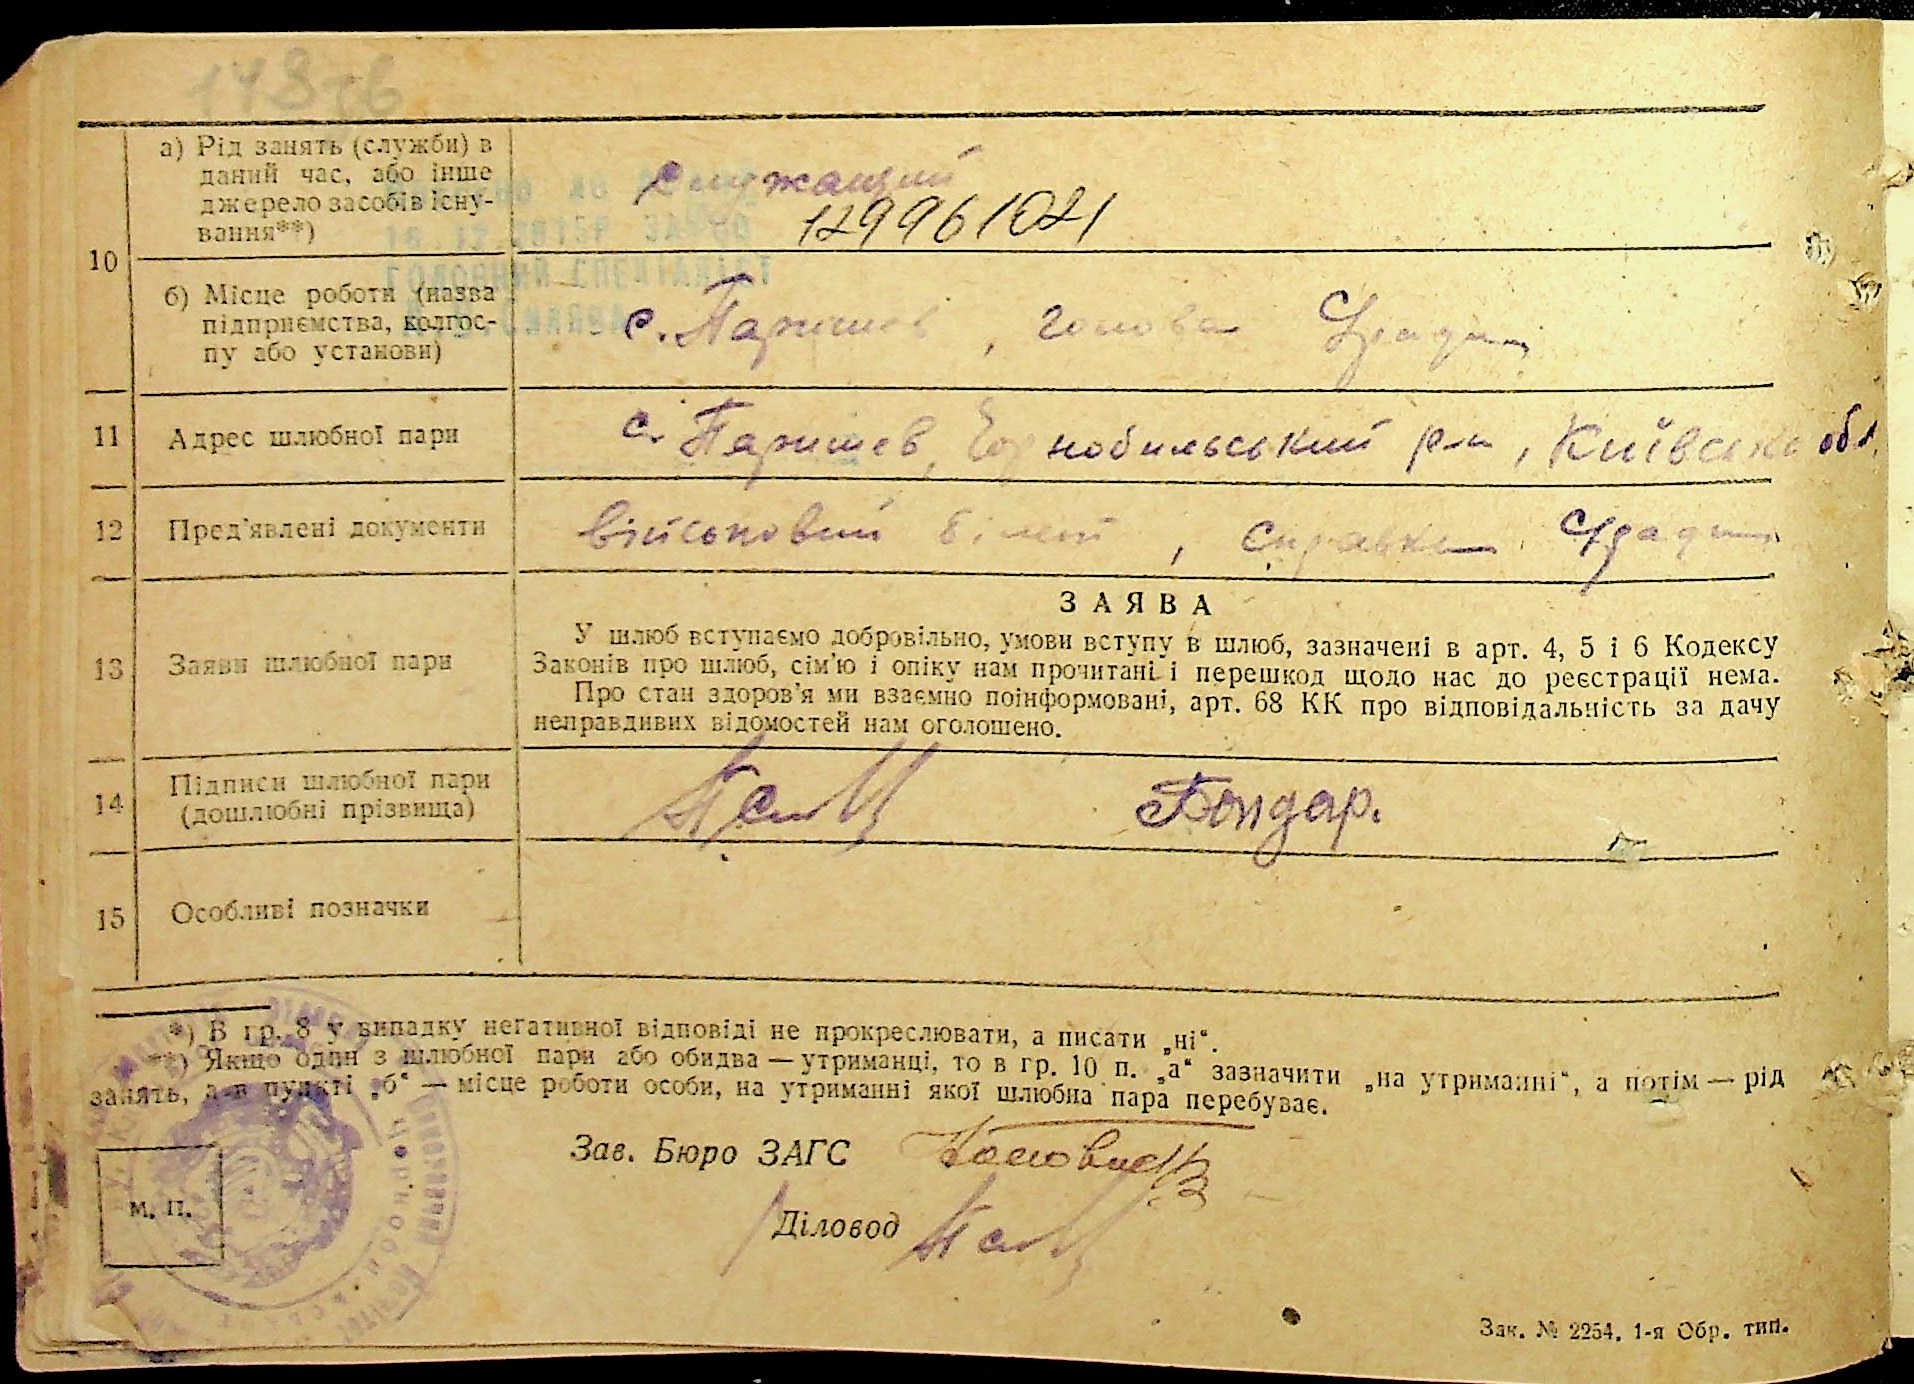 148зв
10
а) Рід занять (служби) в
даний час, або інше
джерело засобів існу-
вання**)
служащий
129961021
б) Місце роботи (назва
підприємства, колгос-
пу або установи)
с. Паришев, голова С/ради
11
Адрес шлюбної пари
с. Паришев, Чорнобильський р-н, Київська обл.
12
Пред'явлені документи
військовий білет, справка С/ради
13
Заяви шлюбної пари
ЗАЯВА
У шлюб вступаємо добровільно, умови вступу в шлюб, зазначені в арт. 4, 5 і 6 Кодексу
Законів про шлюб, сім'ю і опіку нам прочитані і перешкод щодо нас до реєстрації нема.
Про стан здоров'я ми взаємно поінформовані, арт. 68 КК про відповідальність за дачу
неправдивих відомостей нам оголошено.
14
Підписи шлюбної пари
(дошлюбні прізвища)
Бондар.
15
Особливі позначки
*) В гр. 8 у випадку негативної відповіді не прокреслювати, а писати „ні“.
**) Якщо один з шлюбної пари або обидва — утриманці, то в гр. 10 п. „а“ зазначити „на утриманні“, а потім — рід
занять, а в пункті „б“ — місце роботи особи, на утриманні якої шлюбна пара перебуває.
Зав. Бюро ЗАГС
М. П.
Діловод
Зак. № 2254. 1-я Обр. тип.